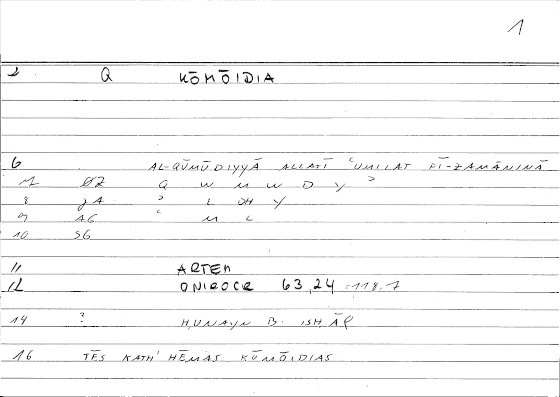 1
2 Q KŌMŌIDIA
6 AL-QŪMŪDIYYĀ ALLATĪ ʿUMILAT FĪ-ZAMĀNINĀ
7 ØZ Q W M W D Y ʾ
8 JA ʾ L DH Y
9 AG ʿ M L
10 SG
11 ARTEM
12 ONIROCR 63,24 =118,7
14 ? ḤUNAYN B. ISḤĀQ
16 TĒS KATH' HĒMAS KŌMŌIDIAS